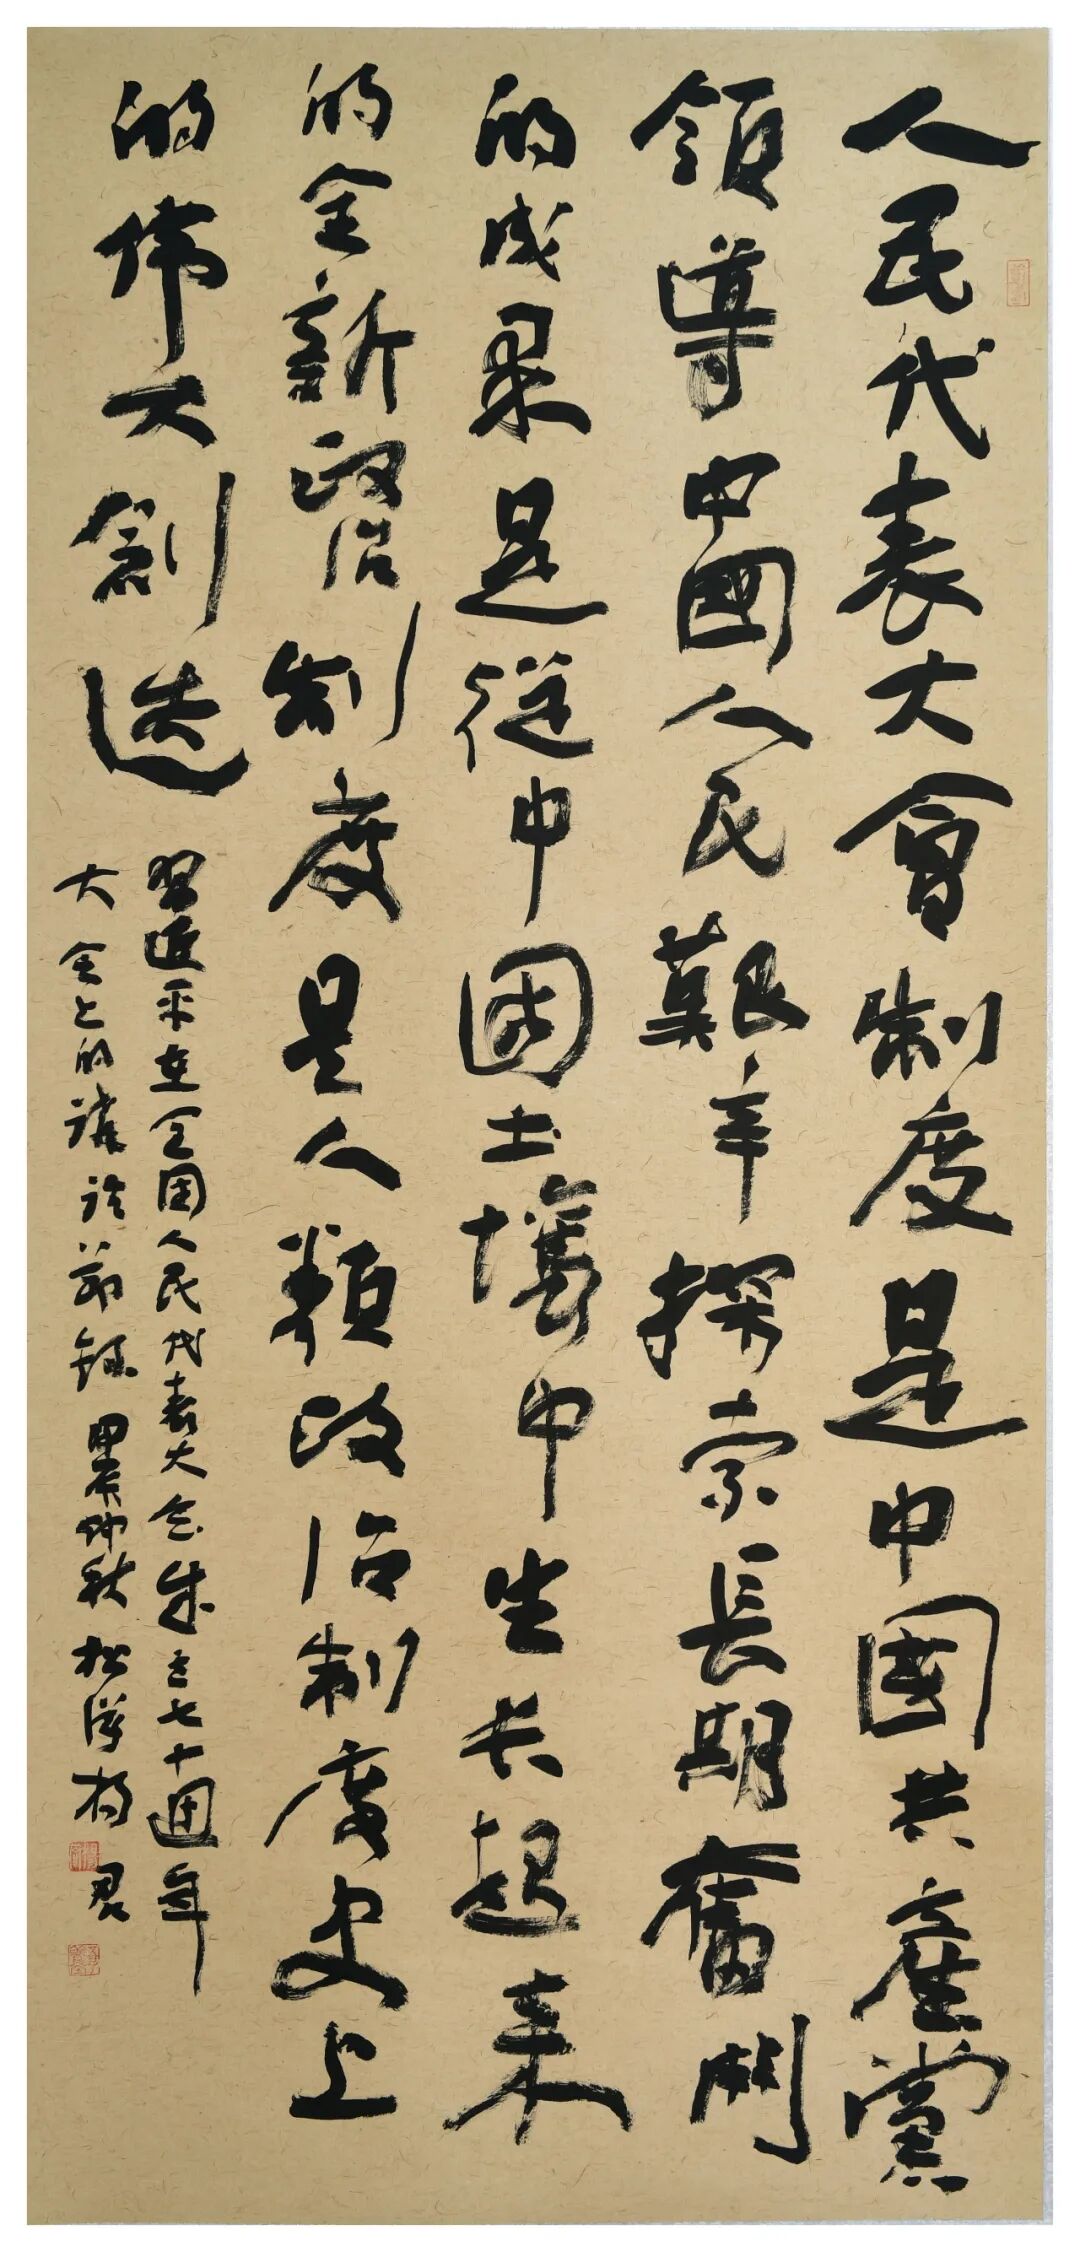 人民代表大會制度是中國共產黨
領導中國人民艱辛探索長期奮鬥
的成果是從中國土壤中生長起來
的全新政治制度是人類政治制度史上
的偉大創造
習近平在全国人民代表大会成立七十週年
大会上的講話節錄 甲辰仲秋 松濤 楊君